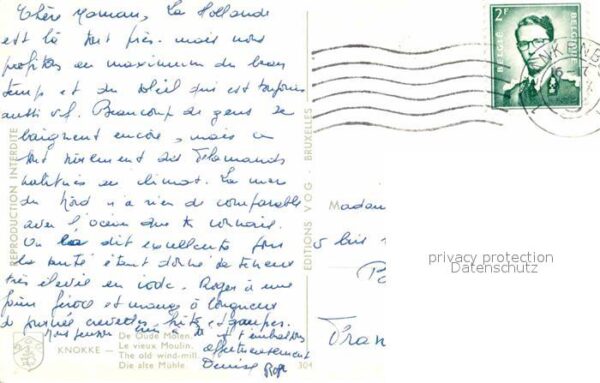 Chère Maman, La Hollande
est là tout près. mais nous
profitons au maximum du beau
temps et du soleil qui est toujours
aussi vif. Beaucoup de gens se
baignent encore, mais ce
sont sûrement des Flamands
habitués au climat. La mer
du Nord n'a rien de comparable
avec l'océan que tu connais.
On la dit excellente pour
la santé étant donné sa teneur
très élevée en iode. Roger a une
faim féroce et mange à longueur
de journée crevettes, frites et gaufres.
Nous pensons à toi et t'embrassons
affectueusement
Denise Roger
REPRODUCTION INTERDITE
EDITIONS VOG - BRUXELLES
KNOKKE –
De Oude Molen.
Le vieux Moulin.
The old wind-mill.
Die alte Mühle.
304
2F
BELGIE
BELGIQUE
Madame
5 bis
France
privacy protection
Datenschutz